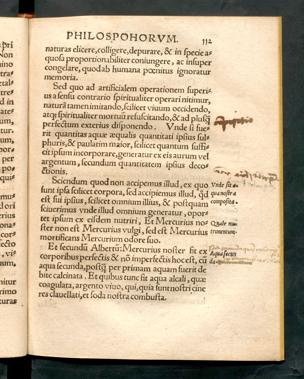 PHILOSPOHORVM. 112
naturas elicere, colligere, depurare, & in specie a-
quosa proportionabiliter coniungere, ac insuper
congelare, quod ab humana pœnitus ignoratur
memoria.
Sed quo ad artificialem operationem superi-
us a sensu contrario spiritualiter operari nitimur,
naturã tamen imitando, scilicet vivum occidendo,
atqʒ spiritualiter mortuũ resuscitando, & ad plusqʒ
perfectum exterius disponendo. Vnde si fue-
rit quantitas aquæ æqualis quantitati ipsius sul-
phuris, & paulum maior, scilicet quantum suffi-
cit ipsum incorporare, generatur ex eis aurum vel
argentum, secundum quantitatem ipsius deco-
ctionis.
Sciendum quod non accipimus illud, ex quo
sunt ipsa scilicet corpora, sed accipimus illud, qđ
est sui ipsius, scilicet omnium illius, & postquam
sciverimus vnde illud omnium generatur, opor-
tet ipsum ex eisdem nutriri, Et Mercurius no-
ster non est Mercurius vulgi, sed est Mercurius
mortificans Mercurium odore suo.
Et secundũ Albertũ: Mercurius noster fit ex
corporibus perfectis & nõ imperfectis hoc est, cũ
aqua secunda, postqʒ per primam aquam fuerit de
bite calcinata. Et quibus tunc fit aqua alcali, quæ
coagulata, argento vivo, qui, quia sunt nostri cine
res clauellati, et soda nostra combusta.
Vnde fit a-
qua nostra
composita.
Aqua secun
da